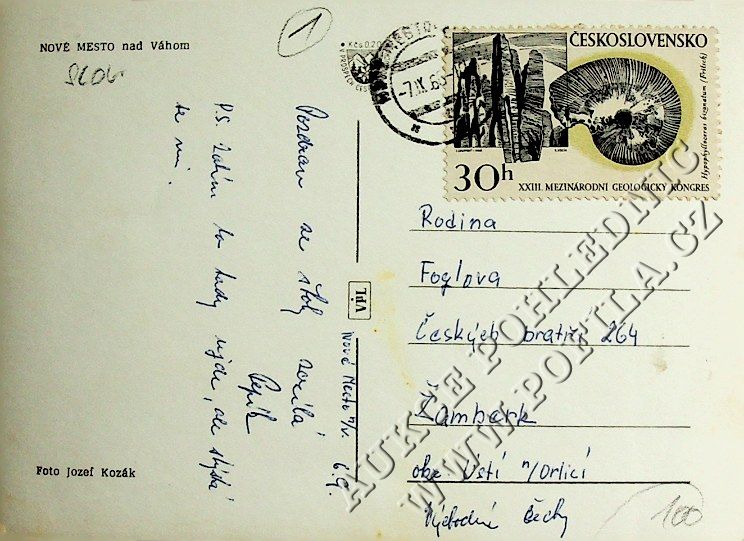 NOVÉ MESTO nad Váhom
SLOV.
1
Kčs 0,20
-7.IX.69
ČESKOSLOVENSKO
Hypophylloceras bizonatum (Fritsch)
30h
XXIII. MEZINÁRODNÍ GEOLOGICKÝ KONGRES
Pozdrav ze
Pepík
Nové Mesto n/V. 6.9.
P.S. Zatím to tady ujde, ale stýská
se mi.
VPL
Rodina
Foglova
Českých bratří 264
Žamberk
okr. Ústí n/Orlicí
Východní Čechy
Foto Jozef Kozák
100
AUKCE POHLEDNIC
WWW.POFILA.CZ